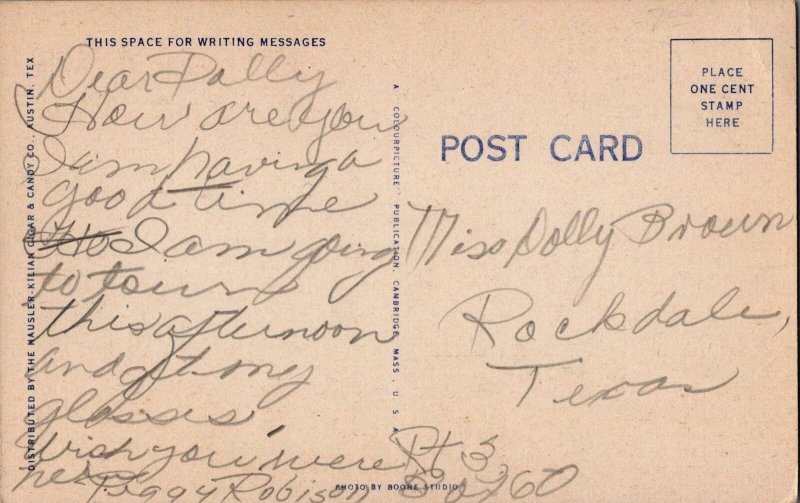 THIS SPACE FOR WRITING MESSAGES
Dear Dolly
How are you
I am having a
good time
I am going
to town
this afternoon
and get my
glasses.
Wish you were
here
Peggy Robison
DISTRIBUTED BY THE HAUSLER-KILIAN CIGAR & CANDY CO., AUSTIN, TEX
A COLOURPICTURE PUBLICATION, CAMBRIDGE, MASS., U.S.A.
POST CARD
PLACE
ONE CENT
STAMP
HERE
Miss Dolly Brown
Rockdale,
Texas
Rt 3,
Bx 260
PHOTO BY BOONE STUDIO